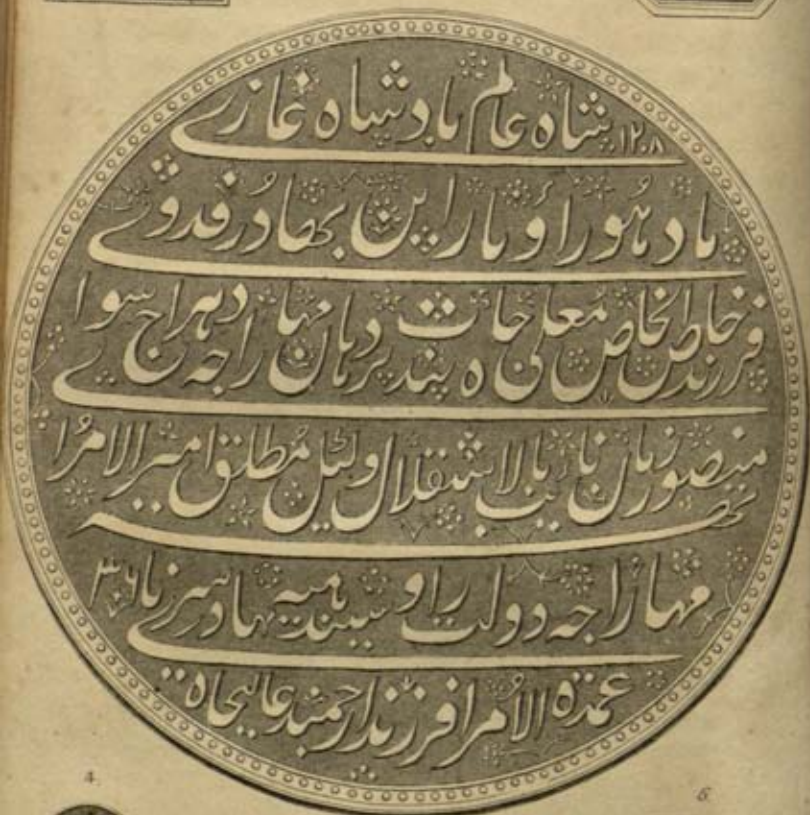 ۱۲۰۸ شاه عالم بادشاه غازے
مادهوراو ناراین بهادر فدوے
فرزند خاص الخاص معلی جاه پند پردهان مهاراجه دهراج سوا
منصور زمان نایب بالاستقلال وکیل مطلق امیرالامرا
مهاراجه دولت راو سیندهیه بهادر
عمدة الامرا فرزند ارجمند عالیجاه
4.
6.